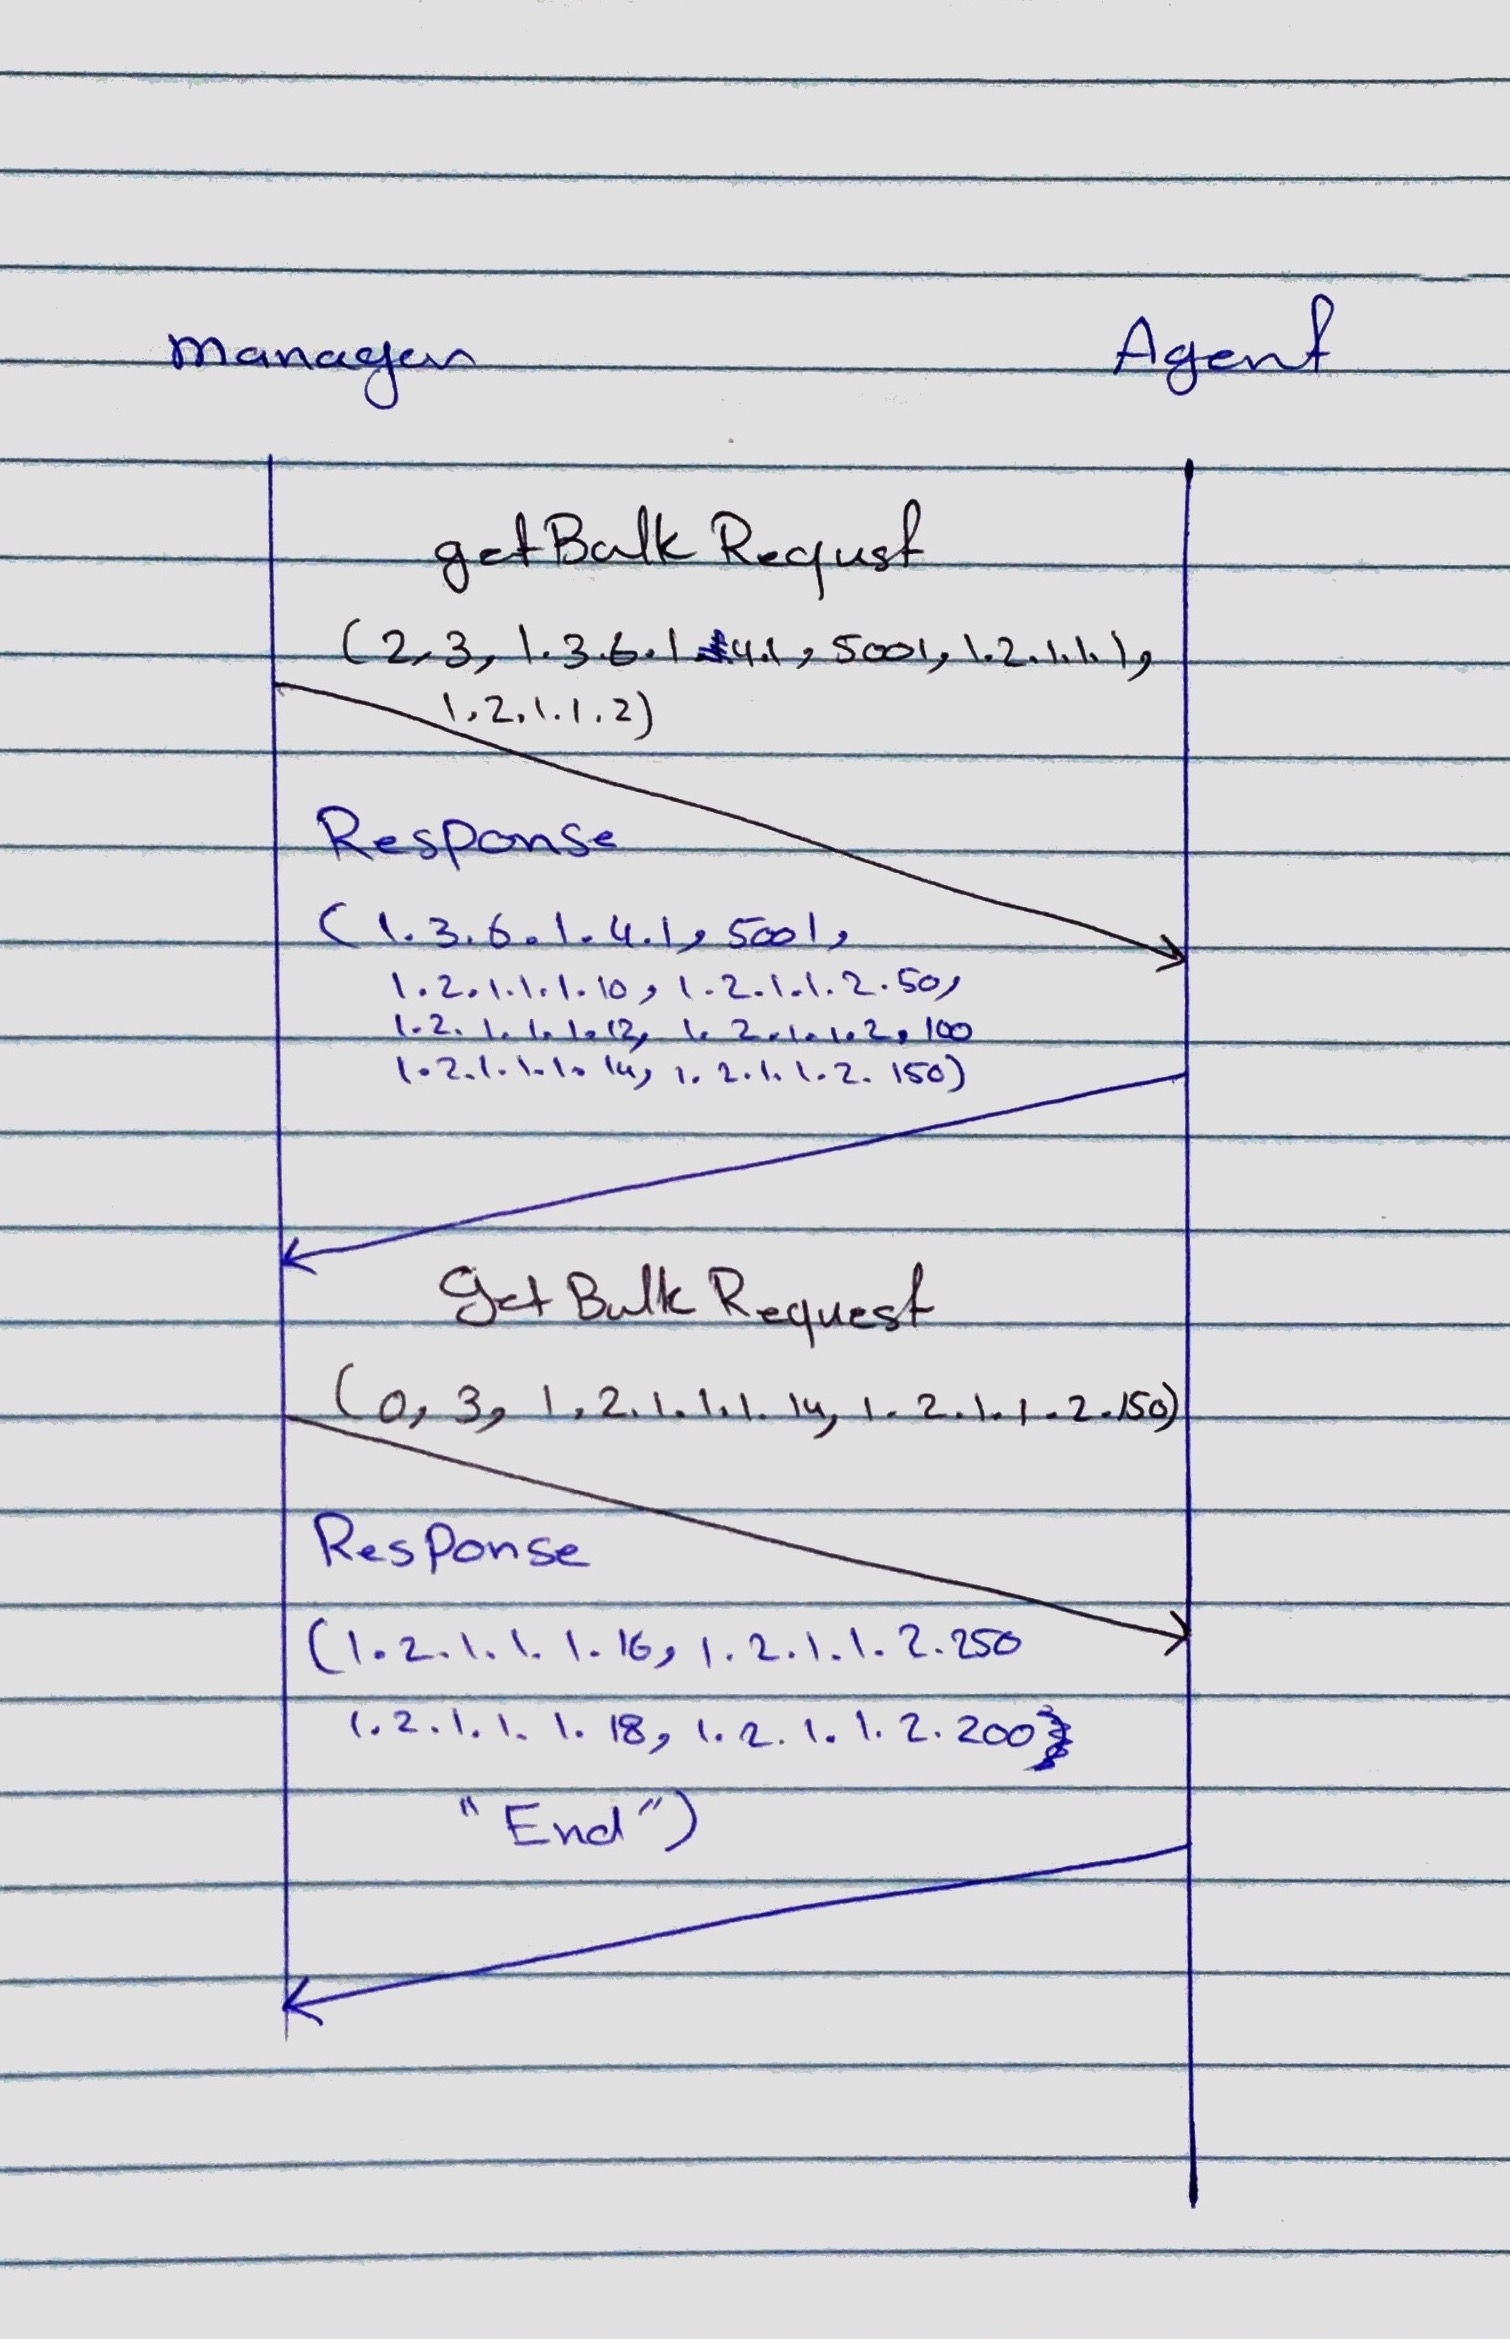 manager
Agent
getBulk Requst
(2, 3, 1.3.6.1.4.1, 5001, 1.2.1.1.1,
1.2.1.1.2)
Response
(1.3.6.1.4.1, 5001,
1.2.1.1.1.10, 1.2.1.1.2.50,
1.2.1.1.1.12, 1.2.1.1.2.100
1.2.1.1.1.14, 1.2.1.1.2.150)
Get Bulk Request
(0, 3, 1.2.1.1.1.14, 1.2.1.1.2.150)
Response
(1.2.1.1.1.16, 1.2.1.1.2.250
1.2.1.1.1.18, 1.2.1.1.2.200
"End")